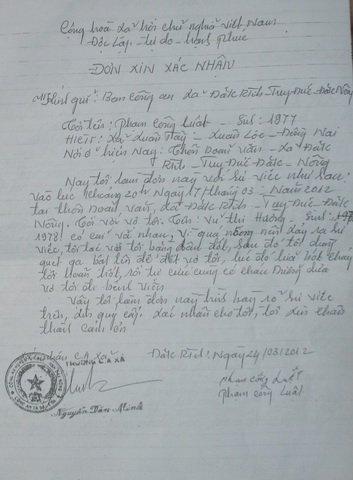 Cộng hoà xã hội chủ nghĩa việt Nam
Độc Lập - tự do - hạnh phúc
ĐƠN XIN XÁC NHẬN
Kính gửi: Ban công an xã Đắk Rtih - Tuy Đức - Đắk Nông
Tôi tên: phạm công Luật - Sinh: 1977
HKTT: Xã xuân Tây - Xuân Lộc - Đồng Nai
Nơi ở hiện Nay: Thôn Doãn văn - xã Đắk
Rtih - Tuy Đức - Đắk - Nông
Nay tôi làm đơn này với sự việc như sau:
vào lúc khoảng 20h Ngày 17 tháng 03 - Năm 2012
tại thôn Doãn văn, xã Đắk Rtih - Tuy Đức - Đắk
Nông. Tôi với vợ tôi. Tên: Vũ thị Hương - Sinh:
1978 có cãi vã nhau, Vì quá nóng nên xảy ra sự
việc, tôi lấy vợ tôi bằng dầu đốt, sau đó tôi dùng
quẹt ga bật lên để đốt vợ tôi, lúc đó lửa bốc cháy
tôi hoản hốt, rồi tự cứu cùng có cháu Dương đưa
vợ tôi đi bệnh viện.
Vậy tôi làm đơn này trình bày rõ sự việc
trên, đến quý cấp. xác nhận cho tôi, tôi xin chân
thành cảm ơn
Đắk Rtih, Ngày 24/03/2012
TRƯỞNG CA XÃ
phạm công Luật
phạm công Luật
Nguyễn Dân Minh